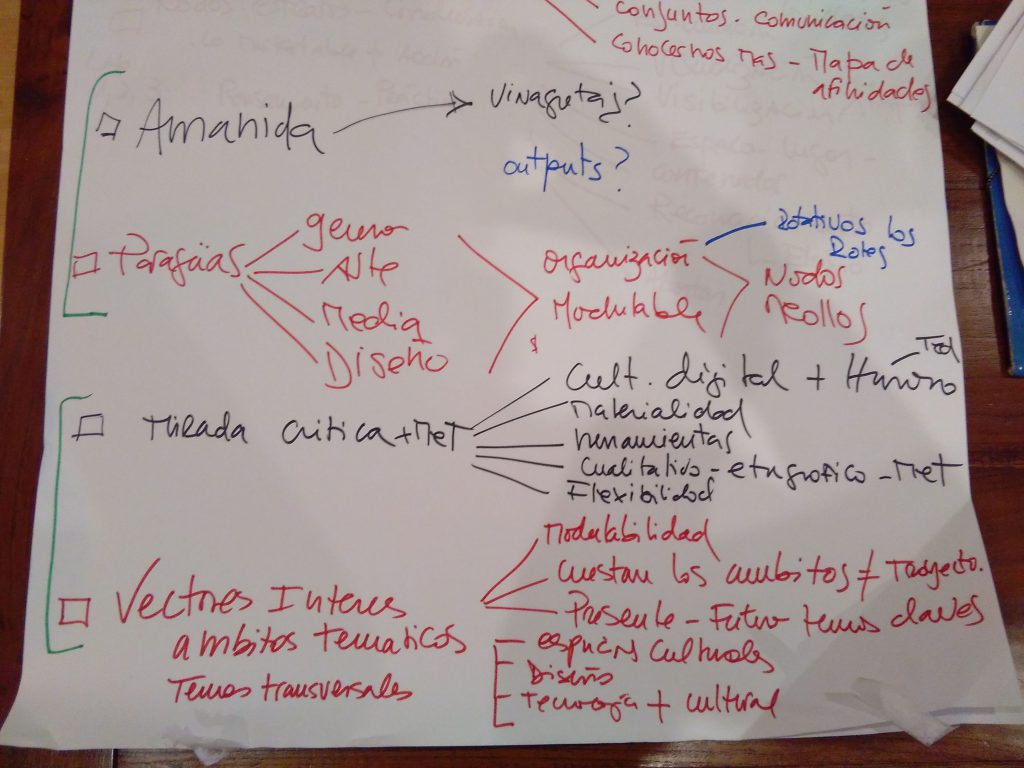 conjuntos. comunicación
conocernos mas - Mapa de
afinidades
Amanida
vinagretas?
outputs?
Paragüas
genero
Arte
Media
Diseño
organización
Modulable
Rotativos los
Roles
Nodos
Rollos
Mirada critica + Met
Cult. digital + Humano
Materialidad
herramientas
Cualitativo - etnografico - Met
Flexibilidad
Vectores Interes
ambitos tematicos
Temas transversales
Modulabilidad
los ambitos ≠ Trayecto.
Presente - Futuro temas claves
espacios culturales
Diseño
Tecnología + cultural